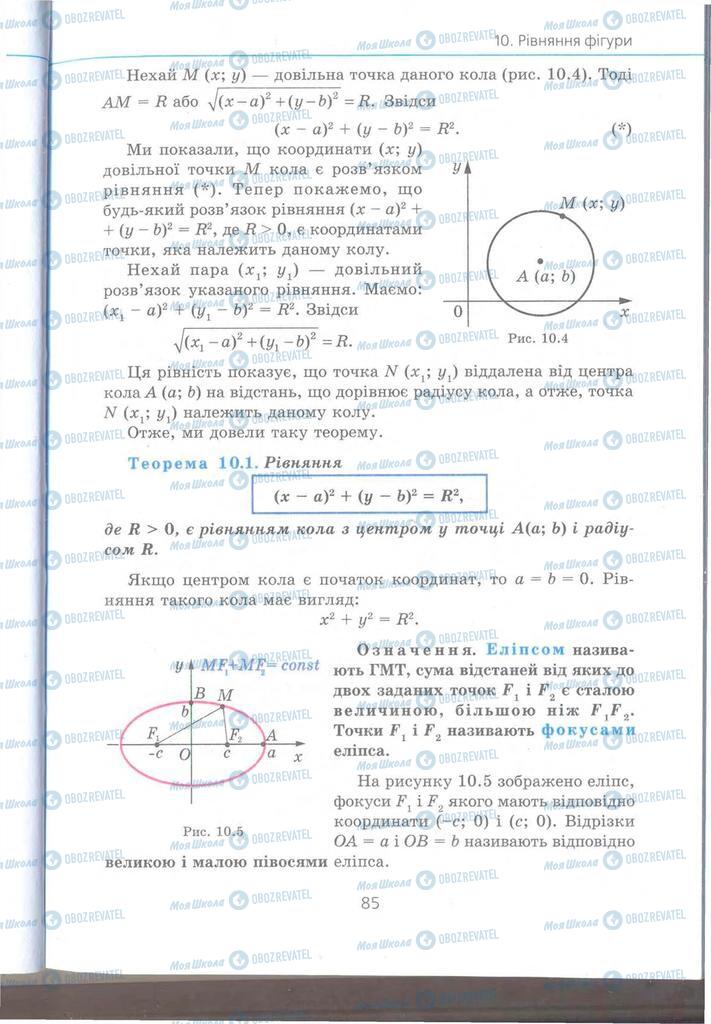 10. Рівняння фігури
Нехай M (x; y) — довільна точка даного кола (рис. 10.4). Тоді
AM = R або √((x−a)² + (y−b)²) = R. Звідси
(x − a)² + (y − b)² = R². (*)
Ми показали, що координати (x; y)
довільної точки M кола є розв’язком
рівняння (*). Тепер покажемо, що
будь-який розв’язок рівняння (x − a)² +
+ (y − b)² = R², де R > 0, є координатами
точки, яка належить даному колу.
Нехай пара (x₁; y₁) — довільний
розв’язок указаного рівняння. Маємо:
(x₁ − a)² + (y₁ − b)² = R². Звідси
√((x₁−a)² + (y₁−b)²) = R.
y
M (x; y)
A (a; b)
0
x
Рис. 10.4
Ця рівність показує, що точка N (x₁; y₁) віддалена від центра
кола A (a; b) на відстань, що дорівнює радіусу кола, а отже, точка
N (x₁; y₁) належить даному колу.
Отже, ми довели таку теорему.
Теорема 10.1. Рівняння
(x − a)² + (y − b)² = R²,
де R > 0, є рівнянням кола з центром у точці A(a; b) і радіу-
сом R.
Якщо центром кола є початок координат, то a = b = 0. Рів-
няння такого кола має вигляд:
x² + y² = R².
y
MF₁+MF₂= const
B M
b
F₁ F₂ A
-c O c a x
Рис. 10.5
Означення. Еліпсом назива-
ють ГМТ, сума відстаней від яких до
двох заданих точок F₁ і F₂ є сталою
величиною, більшою ніж F₁F₂.
Точки F₁ і F₂ називають фокусами
еліпса.
На рисунку 10.5 зображено еліпс,
фокуси F₁ і F₂ якого мають відповідно
координати (−c; 0) і (c; 0). Відрізки
OA = a і OB = b називають відповідно
великою і малою півосями еліпса.
85
МояШкола OBOZREVATEL